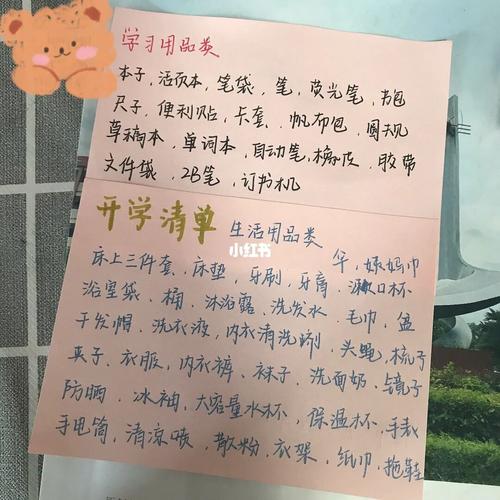 学习用品类
本子,活页本,笔袋,笔,荧光笔,书包
尺子,便利贴,卡套,帆布包,圆规
草稿本,单词本,自动笔,橡皮,胶带
文件袋,2B笔,订书机
开学清单 生活用品类
小红书
床上三件套、床垫,牙刷,牙膏、伞,姨妈巾
浴室袋、桶、沐浴露、洗发水、漱口杯
干发帽、洗衣液,内衣清洗剂、毛巾、盆
夹子、衣服,内衣裤、袜子、洗面奶、头绳,梳子
防晒、冰袖、大容量水杯、保温杯、镜子
手电筒,清凉喷,散粉,衣架,纸巾,拖鞋,手表